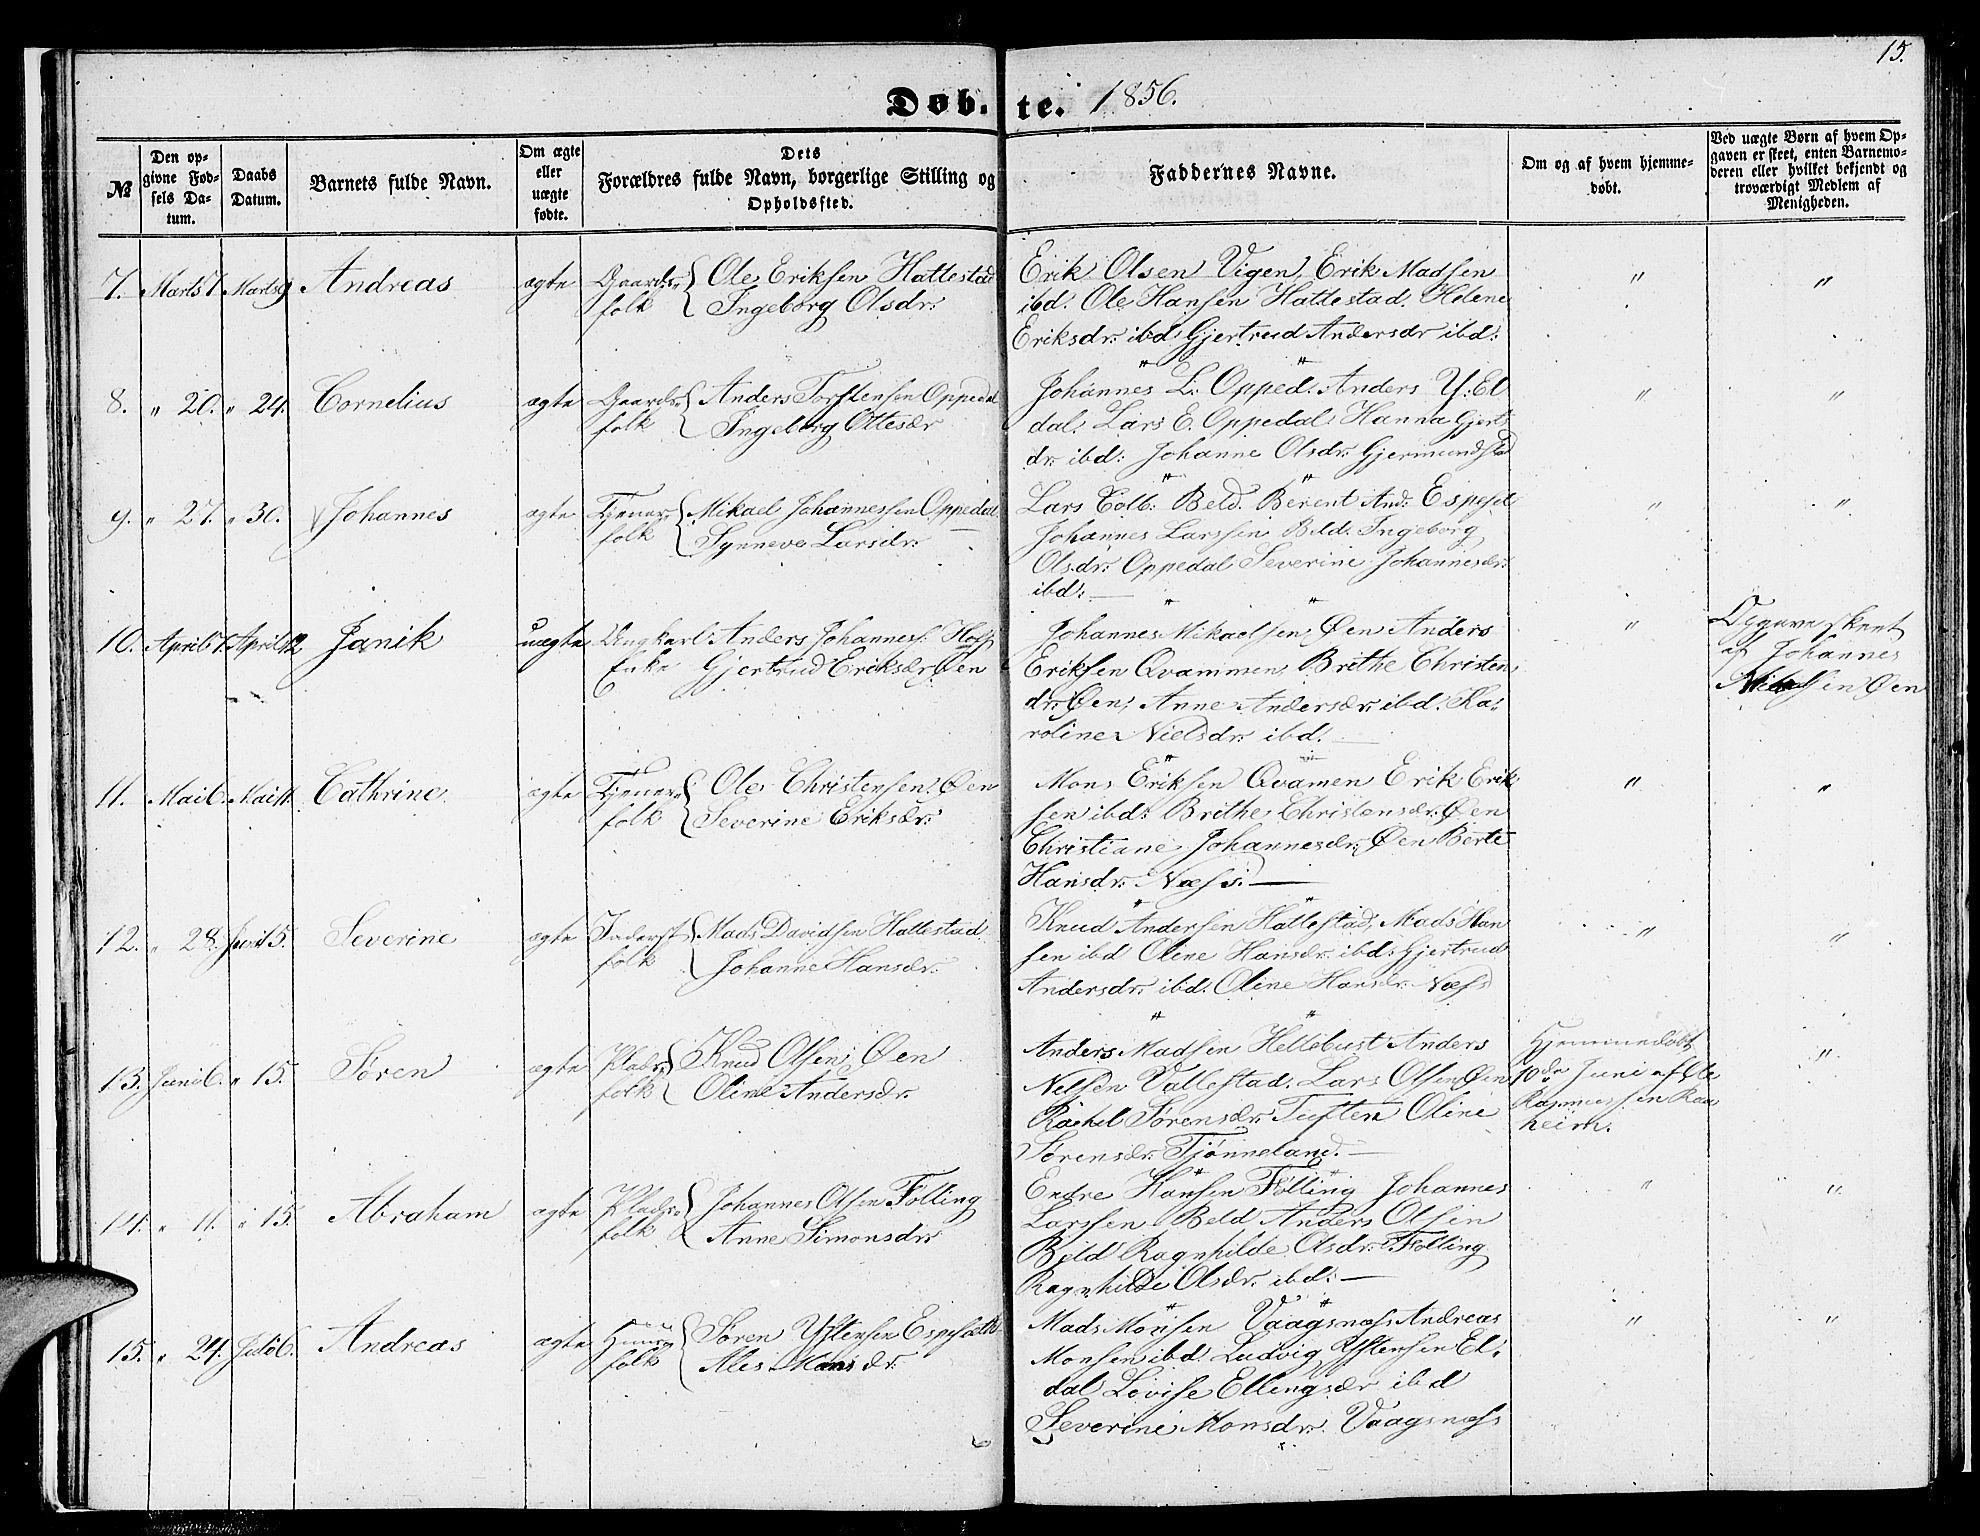 15.
Døb. te. 1856.
№
Den op-
givne Fød-
sels Da-
tum.
Daabs
Datum.
Barnets fulde Navn.
Om ægte
eller
uægte
fødte.
Dets
Forældres fulde Navn, borgerlige Stilling og
Opholdssted.
Faddernes Navne.
Om og af hvem hjemme-
døbt.
Ved uægte Børn af hvem Op-
gaven er skeet, enten Barnemo-
deren eller hvilket bekjendt og
troværdigt Medlem af
Menigheden.
7. Marts 7. Marts 9 Andreas ægte Gaards- folk { Ole Eriksen Hattestad
Ingeborg Olsdr:
Erik Olsen Vigen, Erik Madsen
ibd. Ole Hansen Hattestad. Helene
Eriksdr: ibd Gjertrud Andersdr ibd:
" "
8. " 20. " 24. Cornelius ægte Gaards- folk { Anders Torstensen Oppedal
Ingeborg Ottesdr
Johannes L. Opped. Anders Y: El
dal. Lars E. Oppedal Hanna Gjert
dr: ibd: Johanne Olsdr. Gjermundstad
" "
9. " 27. " 30. Johannes ægte Tjener- folk { Mikael Johannessen Oppedal
Synneve Larsdr.
Lars Colb: Beld. Berent And: Espeset
Johannes Larssen Beld. Ingeborg
Olsdr. Oppedal Severine Johannesdr.
ibd: —
" "
10. April 7. April 12 Janik uægte Ungkarl Anders Johannes.
Enke Gjertrud Eriksdr Øen
Johannes Mikaelsen Øen Anders
Eriksen Qvammen, Brithe Christen
dr: Øen, Anne Andersdr. ibd. Ka-
roline Nielsdr. ibd. —
" Opgave skeet
af Johannes
Øen
11. Mai 6. Mai 11. Cathrine ægte Tjener- folk { Ole Christensen Øen
Severine Eriksdr:
Mons Eriksen Qvamen Erik Erik
sen ibd: Brithe Christensdr. Øen
Christiane Johannesdr. Øen Berte
Hansdr. Næss. —
" "
12. " 28. Juni 5. Severine ægte Inderst folk { Mads Davidsen Hattestad
Johanne Hansdr.
Knud Andersen Hattestad, Mads Han
sen ibd Oline Hansdr. ibd: Gjertrud
Andersdr. ibd. Oline Hansdr. Næss
" "
13. Juni 6. " 15. Søren ægte Plads- folk { Knud Olsen Øen
Oline Andersdr.
Anders Madsen Hellebust Anders
Nelsen Vallestad. Lars Olsen Øen
Rachel Sørensdr. Tuften Oline
Sørensdr. Tjønneland. —
Hjemmedøbt
10de Juni af Ole
Rasmussen Raa
heim.
"
14. " 11. " 15. Abraham ægte Plads- folk { Johannes Olsen Følling
Anne Simonsdr:
Endre Hansen Følling Johannes
Larssen Beld Anders Olsen
Beld Ragnhilde Olsdr. Følling
Ragnhilde Olsdr. ibd: —
" "
15. " 24. Juli 6. Andreas ægte Huus- folk { Søren Ystensen Espeseth
Alis Monsdr.
Mads Monsen Vaagsnæs Andreas
Monsen ibd. Ludvig Ystensen El-
dal Lovise Ellingsdr ibd
Severine Monsdr. Vaagsnæss
" "